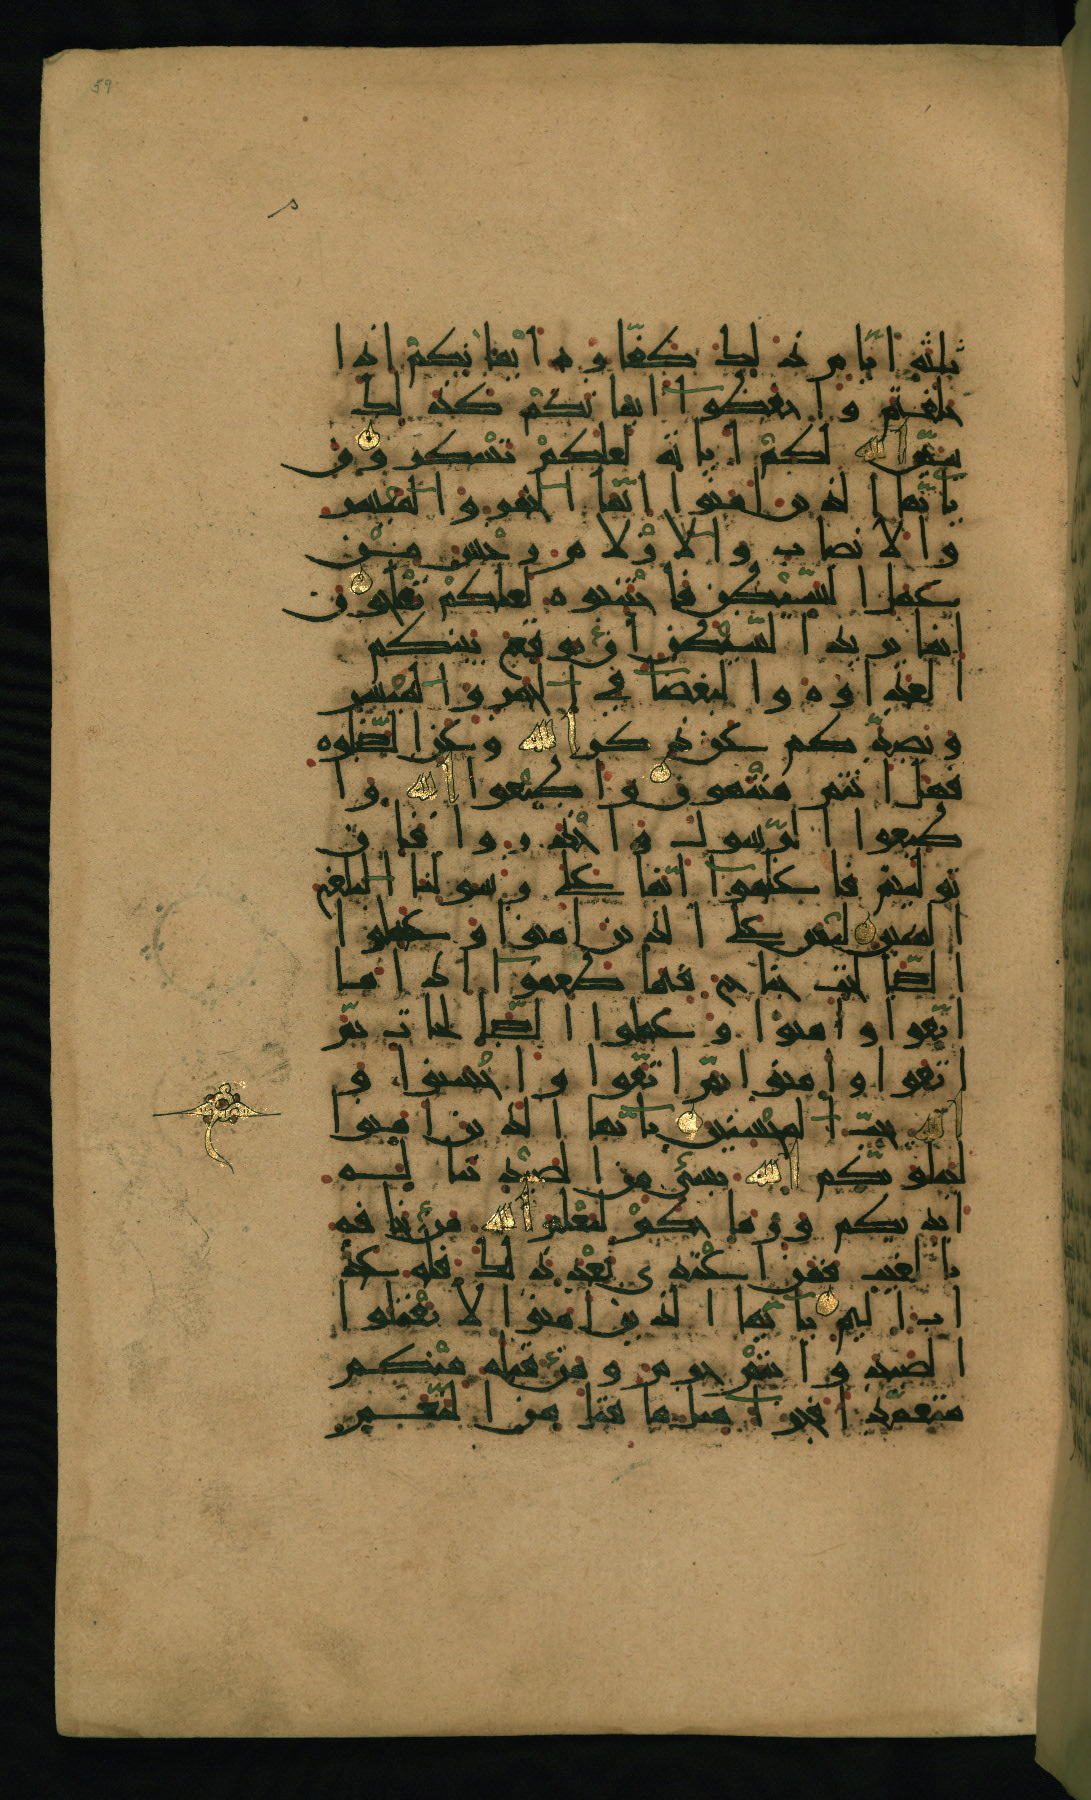 59
ثلثة ايام ذلك كفارة ايمانكم اذا
حلفتم واحفظوا ايمانكم كذلك
يبين الله لكم اياته لعلكم تشكرون
يايها الذين امنوا انما الخمر والميسر
والانصاب والازلام رجس من
عمل الشيطن فاجتنبوه لعلكم تفلحون
انما يريد الشيطن ان يوقع بينكم
العداوة والبغضا في الخمر والميسر
ويصدكم عن ذكر الله وعن الصلوة
فهل انتم منتهون واطيعوا الله وا
طيعوا الرسول واحذروا فان
توليتم فاعلموا انما على رسولنا البلغ
المبين ليس على الذين امنوا وعملوا
الصالحت جناح فيما طعموا اذا ما
اتقوا وامنوا وعملوا الصالحات ثم
اتقوا وامنوا ثم اتقوا واحسنوا و
الله يحب المحسنين يايها الذين امنوا
ليبلونكم الله بشئ من الصيد تناله
ايديكم ورماحكم ليعلم الله من يخافه
بالغيب فمن اعتدى بعد ذلك فله عذ
اب اليم يايها الذين امنوا لا تقتلوا
الصيد وانتم حرم ومن قتله منكم
متعمدا فجزا مثل ما قتل من النعم